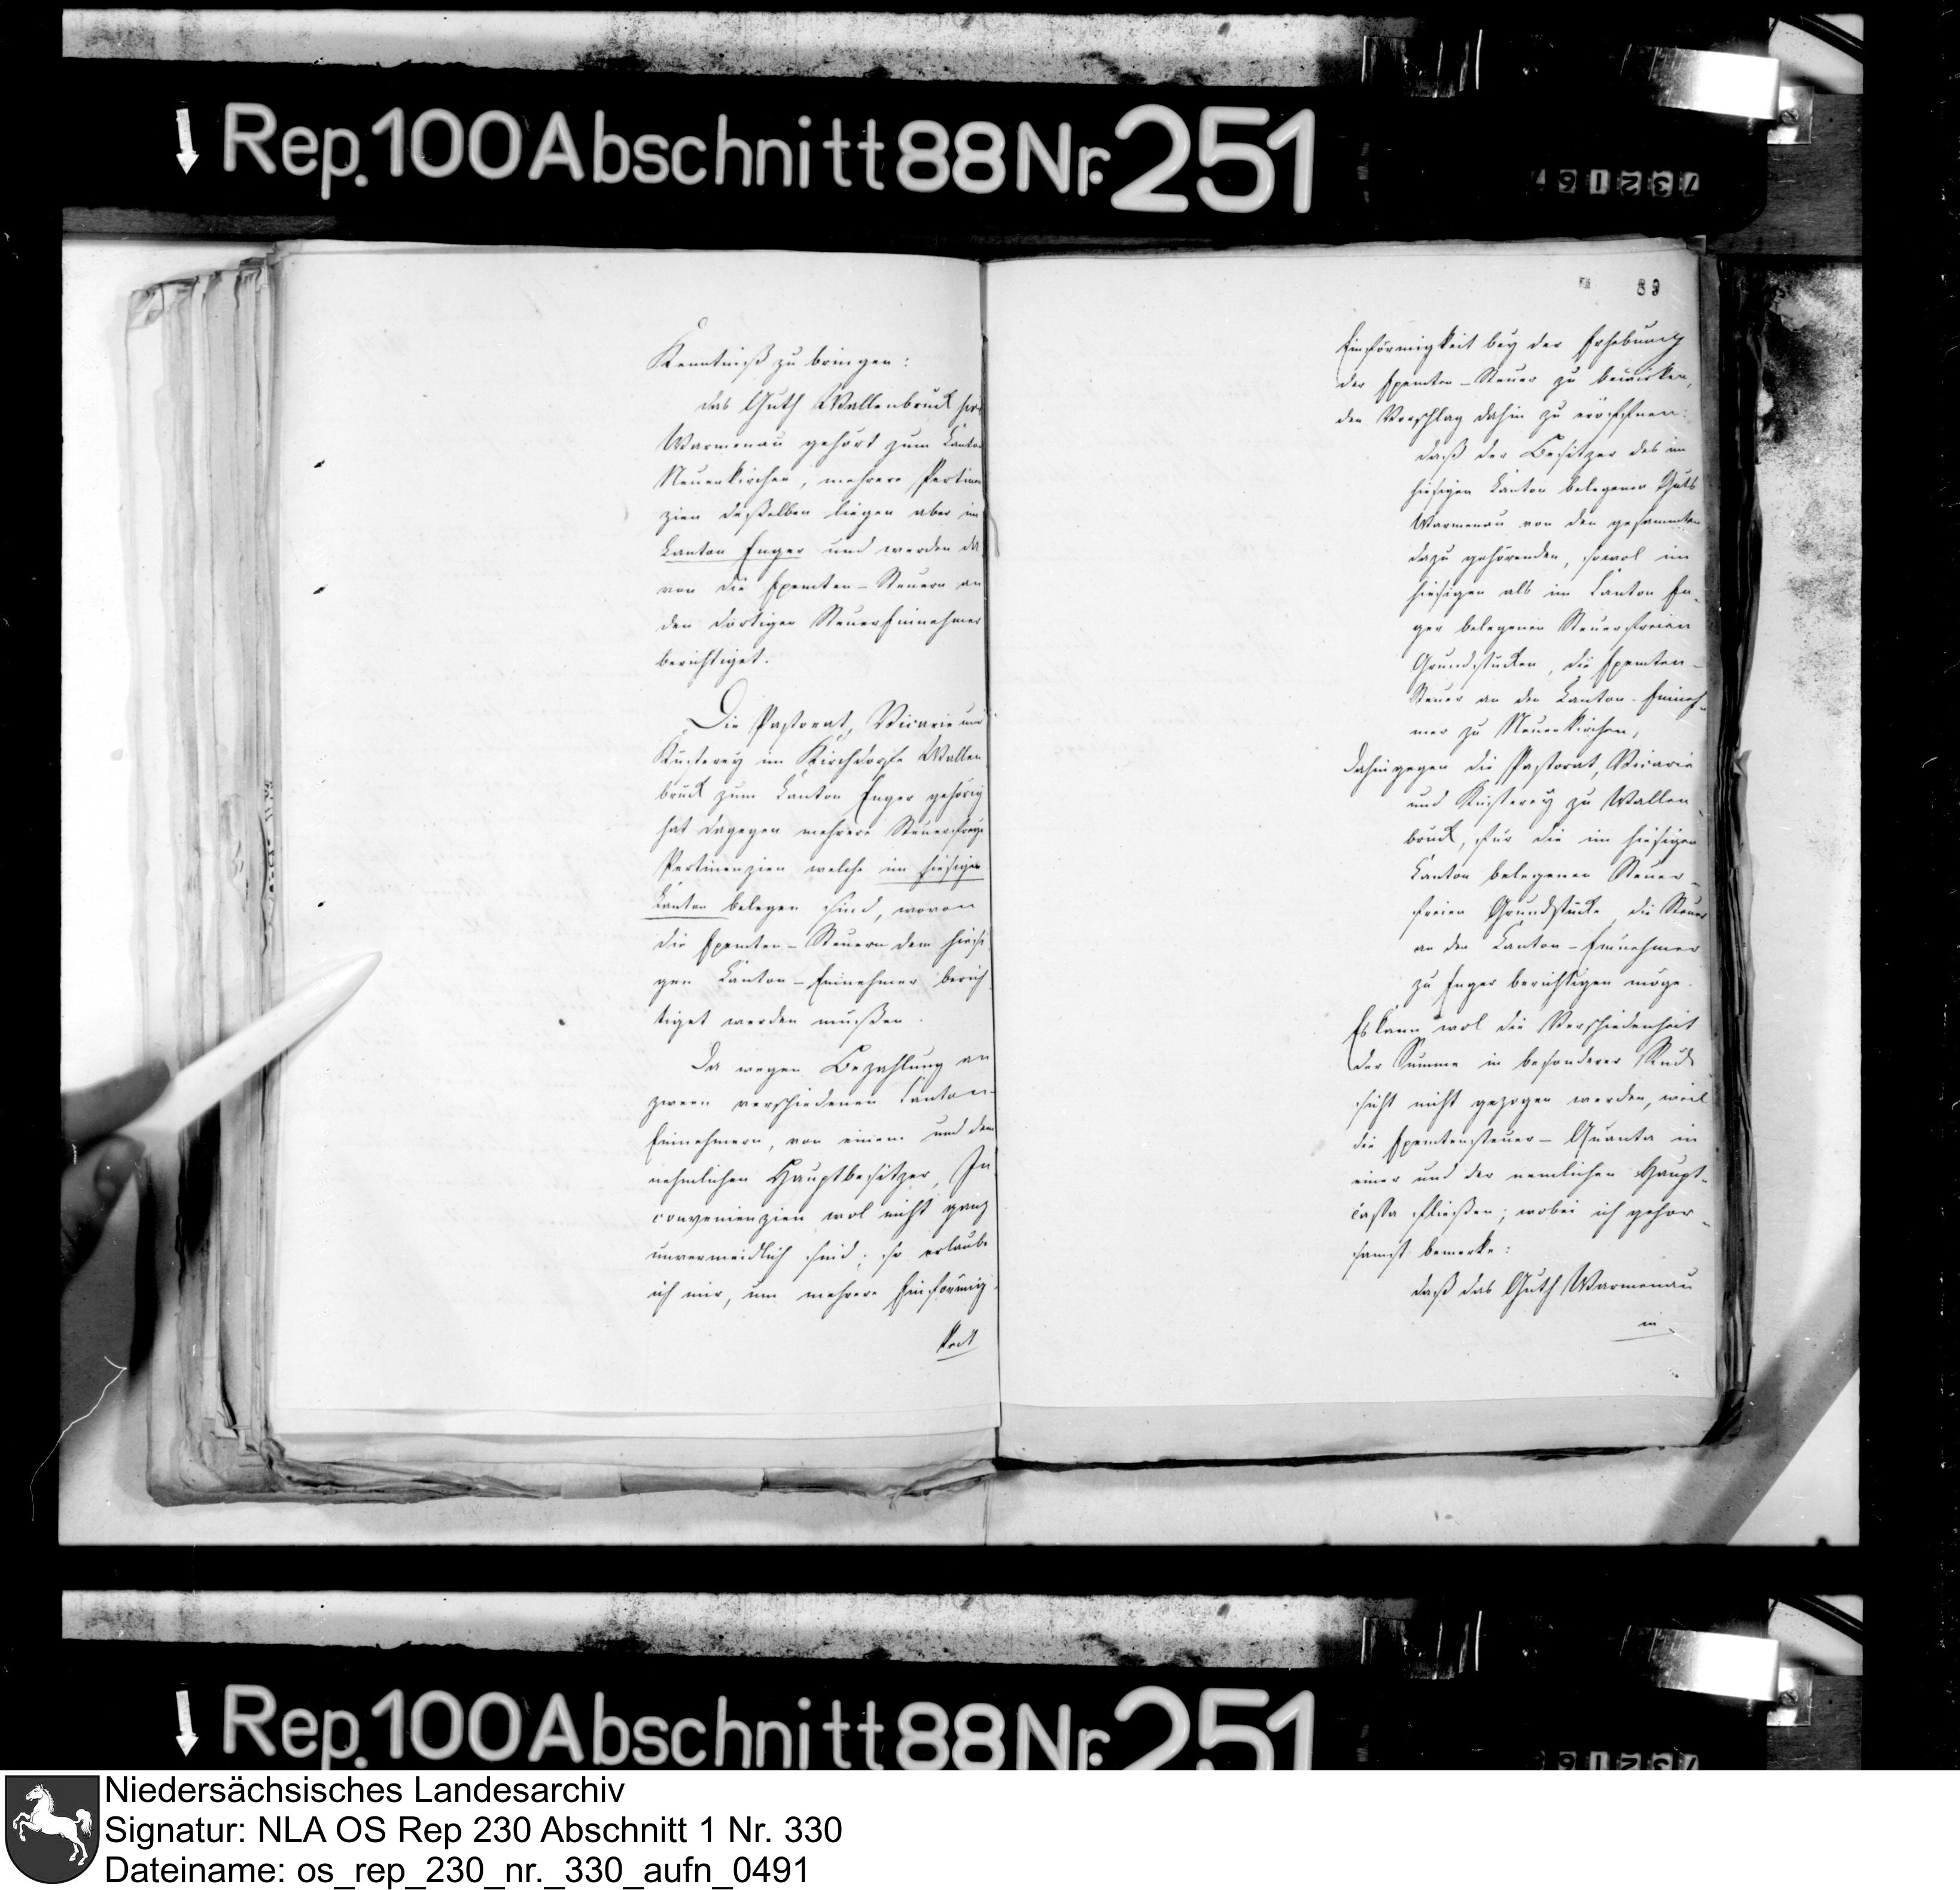 Rep. 100 Abschnitt 88 Nr. 251
Kenntniß zu bringen:
das Guth Wallenbruck
Warmenau gehört zum Canton
Neuenkirchen, mehrere Pertinen
zien deßelben liegen aber im
Canton Enger und werden da
von die Exemten-Steuern an
den dortigen Steuer Einnehmer
berichtiget.
Die Pastorat, Vicarie und
Küsterey im Kirchdorfe Wallen
bruck zum Canton Enger gehörig
hat dagegen mehrere Steuerfreye
Pertinenzien welche im hiesigen
Canton belegen sind, wovon
die Exemten-Steuern dem hiesi
gen Canton-Einnehmer berich
tiget werden müßen.
Da wegen Bezahlung an
zween verschiedenen Canton-
Einnehmern, von einem und dem
nehmlichen Hauptbesitzer, In
convenienzien wol nicht ganz
unvermeidlich sind; so erlaube
ich mir, um mehrere Einförmig-
keit
89
Einförmigkeit bey der Erhebung
der Exemten-Steuer zu bewirken,
den Vorschlag dahin zu eröffnen:
daß der Besitzer des im
hiesigen Canton belegenen Guts
Warmenau von den gesammten
dazu gehörenden, sowol im
hiesigen als im Canton En-
ger belegenen Steuerfreien
Grundstücken, die Exemten-
Steuer an den Canton-Einneh-
mer zu Neuenkirchen,
dahingegen die Pastorat, Vicarie
und Küsterey zu Wallen-
bruck, für die im hiesigen
Canton belegenen Steuer-
freien Grundstücke die Steuer
an den Canton-Einnehmer
zu Enger berichtigen möge.
Es kann wol die Verschiedenheit
der Summe in besonderer Rück
sicht nicht gezogen werden, weil
die Exemtensteuer-Quanta in
einer und der nemlichen Haupt-
Cassa fließen; wobei ich gehor-
samst bemerke:
daß das Guth Warmenau
in
Rep. 100 Abschnitt 88 Nr. 251
Niedersächsisches Landesarchiv
Signatur: NLA OS Rep 230 Abschnitt 1 Nr. 330
Dateiname: os_rep_230_nr._330_aufn_0491